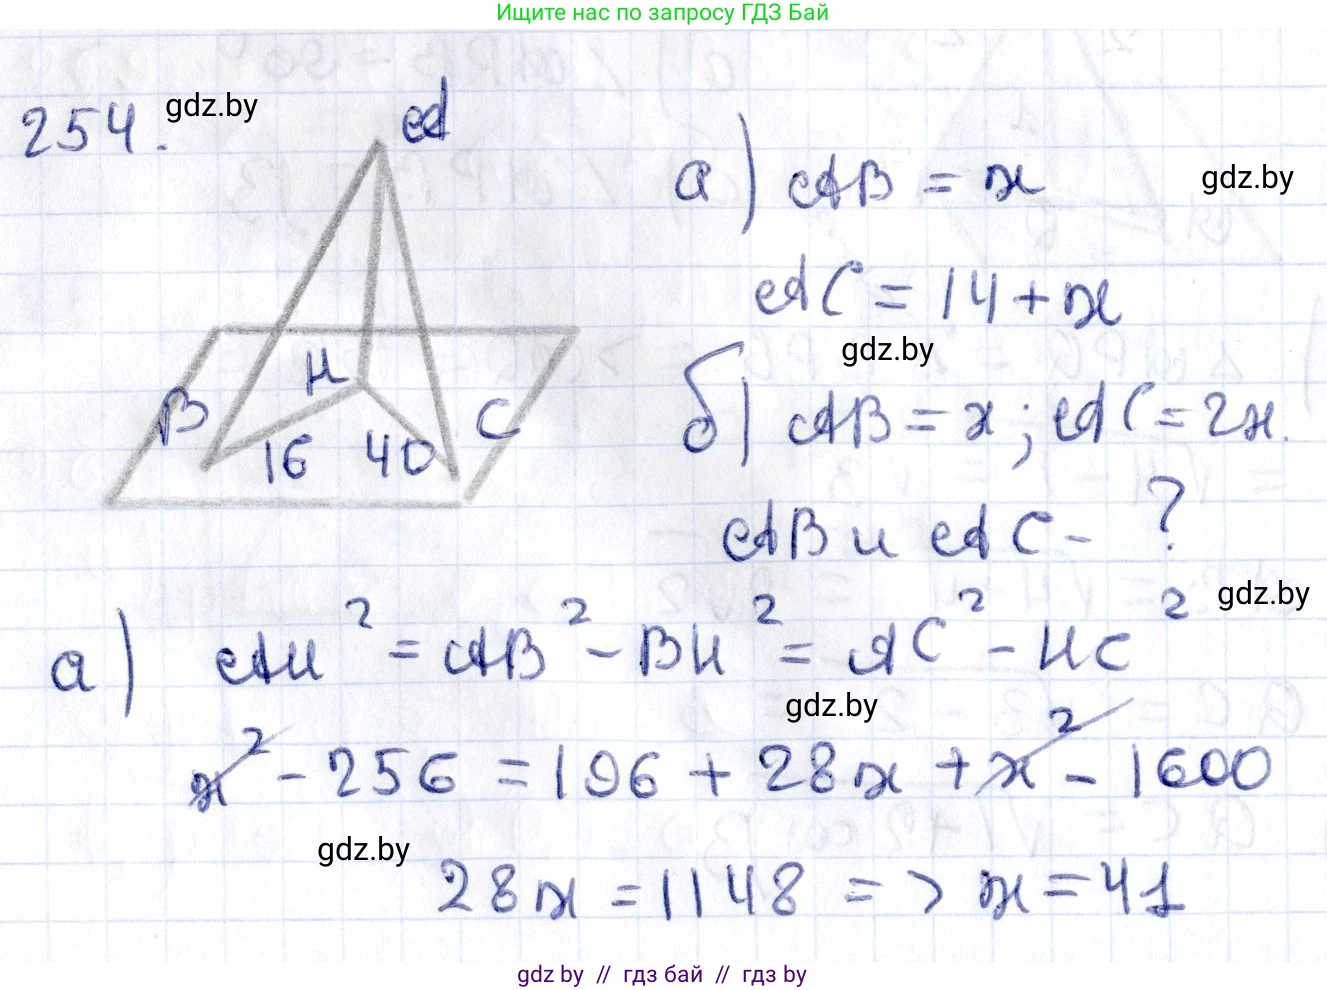 Ищите нас по запросу ГДЗ Бай
254.
gdz.by
A
а) AB = x
gdz.by
AC = 14 + x
gdz.by
H
B
C
16
40
б) AB = x; AC = 2x.
AB и AC - ?
gdz.by
а) AH² = AB² - BH² = AC² - HC²
gdz.by
x² - 256 = 196 + 28x + x² - 1600
gdz.by
28x = 1148 => x = 41
gdz by // гдз бай // gdz by